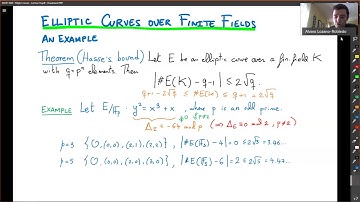 Alvaro Lozano-Robledo
ELLIPTIC CURVES OVER FINITE FIELDS
AN EXAMPLE
Theorem (Hasse's bound) Let E be an elliptic curve over a fin. field K
with q=pⁿ elements. Then
|#E(K) - q - 1| ≤ 2√q.
q+1-2√q ≤ #E(K) ≤ q+1+2√q
EXAMPLE Let E/𝔽p : y² = x³ + x , where p is an odd prime.
Δ_E = -64 mod p (⇒ Δ_E ≢ 0 , p≠2)
p=3 {O, (0,0), (2,1), (2,2)} , |#E(𝔽₃) - 4| = 0 ≤ 2√3 = 3.46...
p=5 {O, (0,0), (2,0), (3,0)} , |#E(𝔽₅) - 6| = 2 ≤ 2√5 = 4.47...